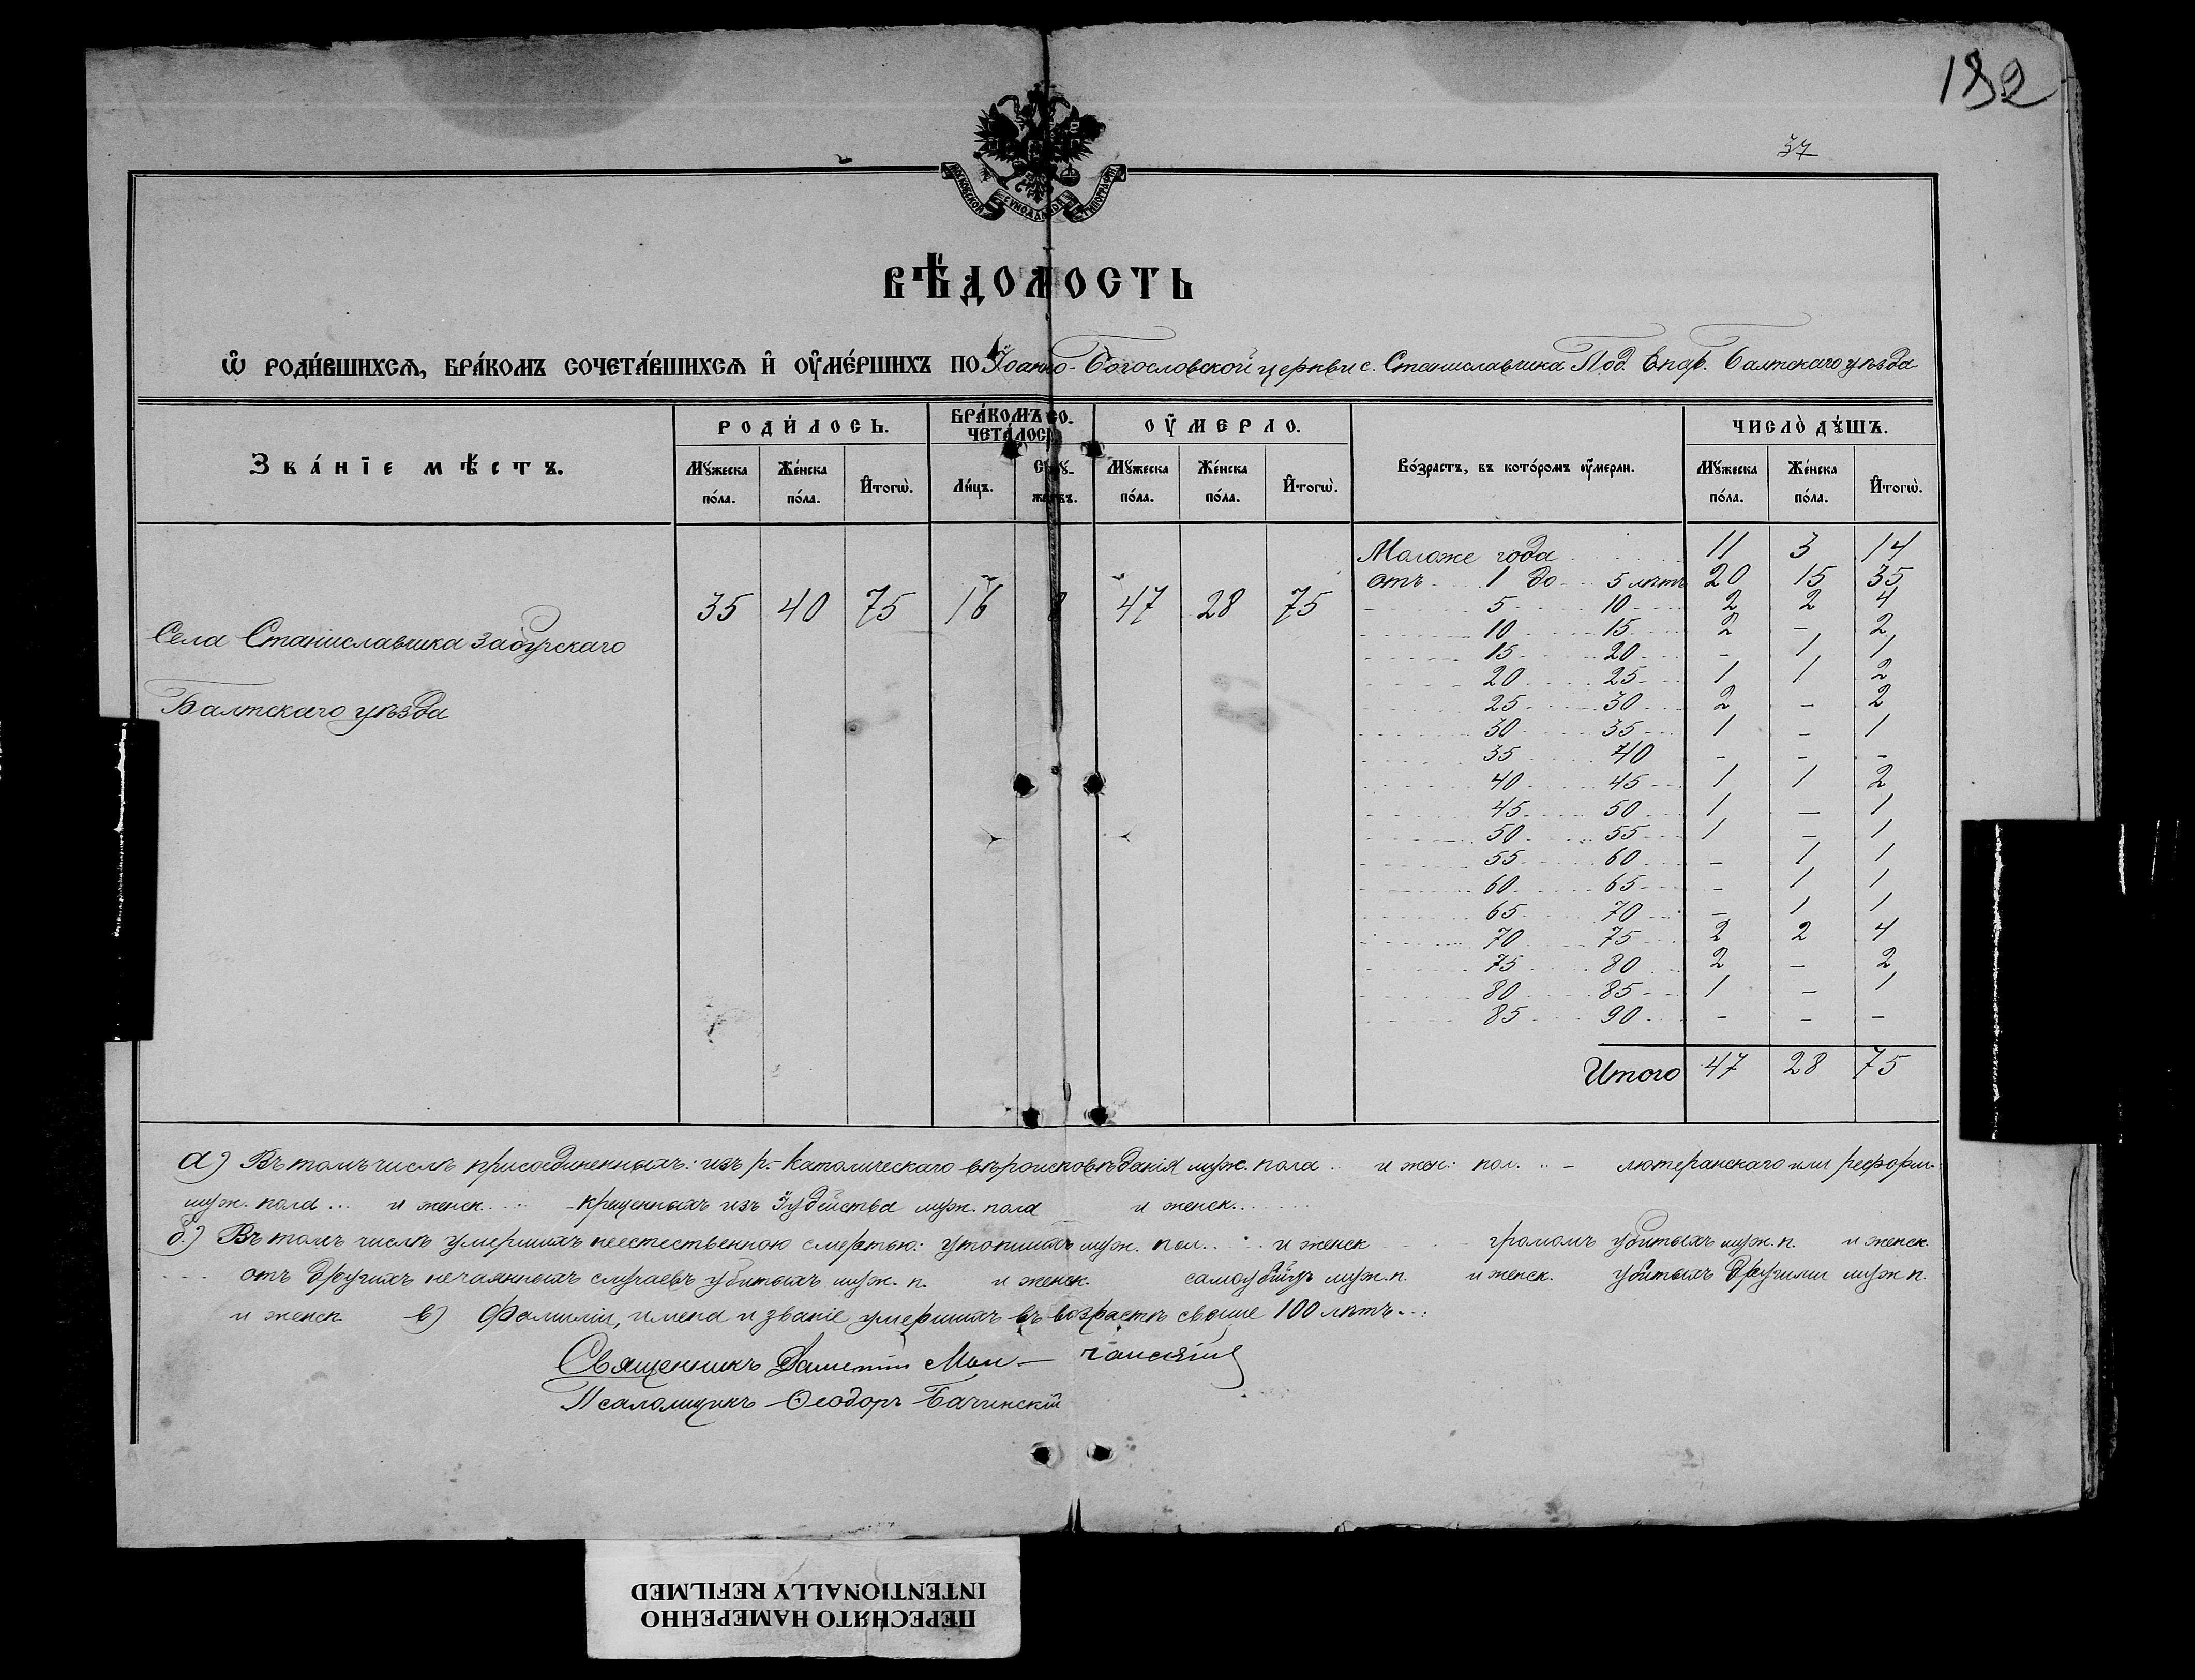 182
37
МОСКОВСКОЙ СѴНОДАЛЬНОЙ ТИПОГРАФІИ
ВѢ́ДОМОСТЬ
Ѡ҆ РОДИ́ВШИХСѦ, БРА́КОМЪ СОЧЕТА́ВШИХСѦ И҆ ОУ҆МЕ́РШИХЪ ПО Іоанно-Богословской церкви с. Станиславчика Под. Епар. Балтскаго уѣзда
Зва́нїе мѣ́стъ.
РОДИ́ЛОСЬ.
БРА́КОМЪ СО-
ЧЕТА́ЛОСЬ
ОУ҆́МЕРЛО.
Во́зрастъ, въ кото́ромъ оу҆́мерли.
ЧИСЛО̀ ДꙊ́ШЪ.
Мꙋ́жеска по́ла. Же́нска по́ла. И҆тогѡ̀. Ли́цъ. Мꙋ́жеска по́ла. Же́нска по́ла. И҆тогѡ̀. Мꙋ́жеска по́ла. Же́нска по́ла. И҆тогѡ̀.
Села Станиславчика Забугскаго
Балтскаго уѣзда
35 40 75 16 8 47 28 75
Моложе года 11 3 14
отъ 1 до 5 лѣтъ 20 15 35
5 10 2 2 4
10 15 2 - 2
15 20 - 1 1
20 25 1 1 2
25 30 2 - 2
30 35 1 - 1
35 40 - - -
40 45 1 1 2
45 50 1 - 1
50 55 1 - 1
55 60 - 1 1
60 65 - 1 1
65 70 - 1 1
70 75 2 2 4
75 80 2 - 2
80 85 1 - 1
85 90 - - -
Итого 47 28 75
а) Въ томъ числѣ присоединенныхъ: изъ р.-католическаго вѣроисповѣданія муж. пола .. и жен: пол. .. - лютеранскаго или реформ.
муж. пола ... и женск. ... - крещенныхъ изъ Іудейства муж. пола и женск. ......
б.) Въ томъ числѣ умершихъ неестественною смертью: утопшихъ муж. пол. .. и женск громомъ убитыхъ муж. п. и женск.
.... отъ другихъ нечаянныхъ случаевъ убитыхъ муж. п. и женск. самоубійцъ муж. п. и женск. убитыхъ другими муж п.
и женск. в) Фамиліи, имена и званіе умершихъ въ возрастѣ свыше 100 лѣтъ...
Священникъ
Псаломщикъ Ѳеодоръ Бачинскій
ПЕРЕСНЯТО НАМЕРЕННО
INTENTIONALLY REFILMED